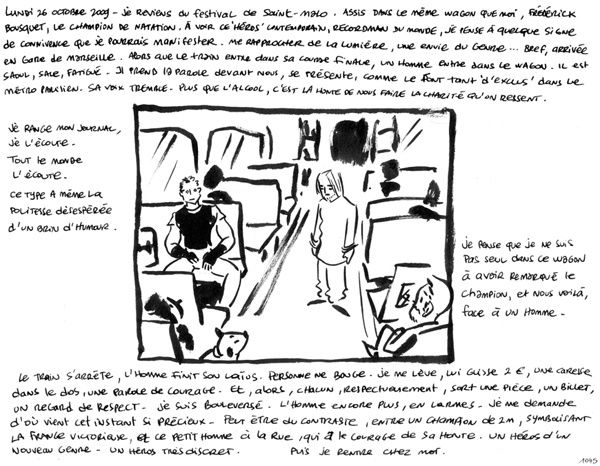 LUNDI 26 OCTOBRE 2009 - JE REVIENS DU FESTIVAL DE SAINT-MALO. ASSIS DANS LE MÊME WAGON QUE MOI, FRÉDÉRICK
BOUSQUET, LE CHAMPION DE NATATION. À VOIR CE 'HÉROS' CONTEMPORAIN, RECORDMAN DU MONDE, JE PENSE À QUELQUE SIGNE
DE CONNIVENCE QUE JE POURRAIS MANIFESTER. ME RAPPROCHER DE LA LUMIÈRE, UNE ENVIE DU GENRE... BREF, ARRIVÉE
EN GARE DE MARSEILLE. ALORS QUE LE TRAIN ENTRE DANS SA COURSE FINALE, UN HOMME ENTRE DANS LE WAGON. IL EST
SAOUL, SALE, FATIGUÉ. IL PREND LA PAROLE DEVANT NOUS, SE PRÉSENTE, COMME LE FONT TANT D'EXCLUS' DANS LE
MÉTRO PARISIEN. SA VOIX TREMBLE. PLUS QUE L'ALCOOL, C'EST LA HONTE DE NOUS FAIRE LA CHARITÉ QU'ON RESSENT.
JE RANGE MON JOURNAL,
JE L'ÉCOUTE.
TOUT LE MONDE
L'ÉCOUTE.
CE TYPE A MÊME LA
POLITESSE DÉSESPÉRÉE
D'UN BRIN D'HUMOUR.
JE PENSE QUE JE NE SUIS
PAS SEUL DANS CE WAGON
À AVOIR REMARQUÉ LE
CHAMPION, ET NOUS VOILÀ,
FACE À UN HOMME -
LE TRAIN S'ARRÊTE, L'HOMME FINIT SON LAÏUS. PERSONNE NE BOUGE. JE ME LÈVE, LUI GLISSE 2 €, UNE CARESSE
DANS LE DOS, UNE PAROLE DE COURAGE. ET, ALORS, CHACUN, RESPECTUEUSEMENT, SORT UNE PIÈCE, UN BILLET,
UN REGARD DE RESPECT - JE SUIS BOULEVERSÉ. L'HOMME ENCORE PLUS, EN LARMES - JE ME DEMANDE
D'OÙ VIENT CET INSTANT SI PRÉCIEUX - PEUT ÊTRE DU CONTRASTE, ENTRE UN CHAMPION DE 2M, SYMBOLISANT
LA FRANCE VICTORIEUSE, ET CE PETIT HOMME À LA RUE, QUI A LE COURAGE DE SA HONTE. UN HÉROS D'UN
NOUVEAU GENRE - UN HÉROS TRÈS DISCRET. PUIS JE RENTRE CHEZ MOI.
1095